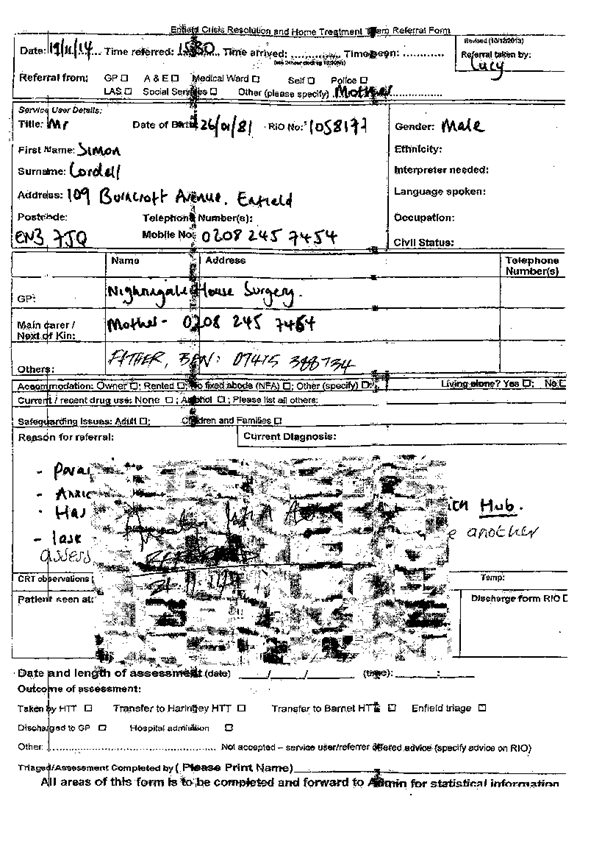 Enfield Crisis Resolution and Home Treatment Team Referral Form
Revised (10/12/2013)
Date: 19/11/14 Time referred: 1530 Time arrived: ............ Time seen: ............
Referral taken by:
Lucy
Referral from: GP ☐ A & E ☐ Medical Ward ☐ Self ☐ Police ☐
LAS ☐ Social Services ☐ Other (please specify) Mother
Service User Details:
Title: Mr Date of Birth 26/01/81 RiO No: 1058177
Gender: Male
First Name: Simon
Ethnicity:
Surname: Cordell
Interpreter needed:
Address: 109 Burncroft Avenue. Enfield
Language spoken:
Postcode: Telephone Number(s):
Occupation:
EN3 7JQ Mobile No: 0208 245 7454
Civil Status:
Name Address Telephone Number(s)
GP: House Surgery.
Main carer / Next of Kin: Mother - 0208 245 7454
Others: FATHER, BEN: 07415 388734
Accommodation: Owner ☐; Rented ☐; No fixed abode (NFA) ☐; Other (specify) ☐; Living alone? Yes ☐; No ☐
Current / recent drug use: None ☐; Alcohol ☐; Please list all others:
Safeguarding Issues: Adult ☐; Children and Families ☐
Reason for referral: Current Diagnosis:
- Has
Hub.
another
assess
CRT observations Temp:
Patient seen at: Discharge form RIO ☐
Date and length of assessment (date) ___/___/___ (time) ___:___
Outcome of assessment:
Taken by HTT ☐ Transfer to Haringey HTT ☐ Transfer to Barnet HTT ☐ Enfield triage ☐
Discharged to GP ☐ Hospital admission ☐
Other: ............ Not accepted – service user/referrer offered advice (specify advice on RIO)
Triaged/Assessment Completed by ( Please Print Name)
All areas of this form is to be completed and forward to Admin for statistical information